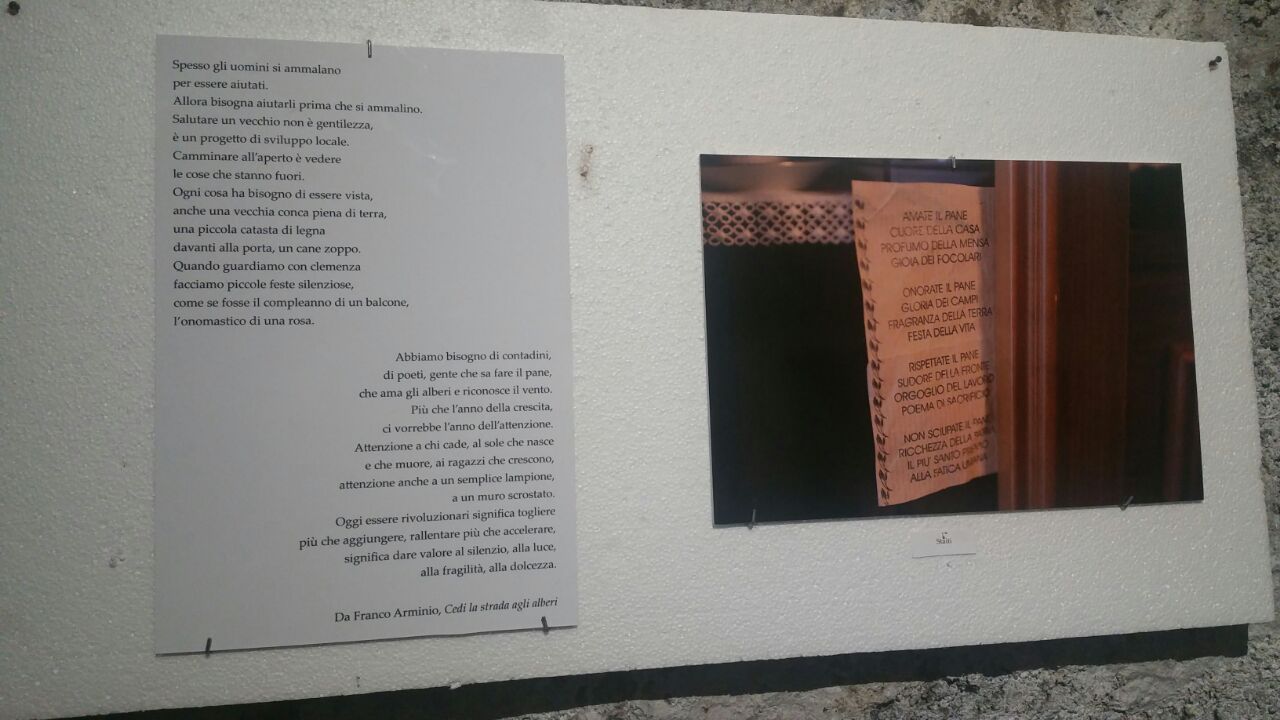 Spesso gli uomini si ammalano
per essere aiutati.
Allora bisogna aiutarli prima che si ammalino.
Salutare un vecchio non è gentilezza,
è un progetto di sviluppo locale.
Camminare all'aperto è vedere
le cose che stanno fuori.
Ogni cosa ha bisogno di essere vista,
anche una vecchia conca piena di terra,
una piccola catasta di legna
davanti alla porta, un cane zoppo.
Quando guardiamo con clemenza
facciamo piccole feste silenziose,
come se fosse il compleanno di un balcone,
l'onomastico di una rosa.
Abbiamo bisogno di contadini,
di poeti, gente che sa fare il pane,
che ama gli alberi e riconosce il vento.
Più che l'anno della crescita,
ci vorrebbe l'anno dell'attenzione.
Attenzione a chi cade, al sole che nasce
e che muore, ai ragazzi che crescono,
attenzione anche a un semplice lampione,
a un muro scrostato.
Oggi essere rivoluzionari significa togliere
più che aggiungere, rallentare più che accelerare,
significa dare valore al silenzio, alla luce,
alla fragilità, alla dolcezza.
Da Franco Arminio, Cedi la strada agli alberi
AMATE IL PANE
CUORE DELLA CASA
PROFUMO DELLA MENSA
GIOIA DEI FOCOLARI
ONORATE IL PANE
GLORIA DEI CAMPI
FRAGRANZA DELLA TERRA
FESTA DELLA VITA
RISPETTATE IL PANE
SUDORE DELLA FRONTE
ORGOGLIO DEL LAVORO
POEMA DI SACRIFICIO
NON SCIUPATE IL PANE
RICCHEZZA DELLA
IL PIU' SANTO PREMIO
ALLA FATICA UMANA